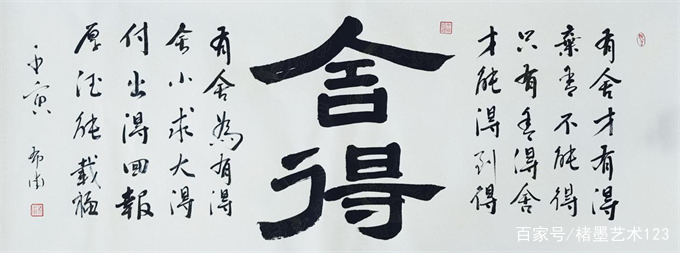 有舍才有得
棄舍不能得
只有舍得舍
才能得到得
舍得
有舍為有得
舍小求大得
付出得回報
厚德能載福
壬寅
百家号/楮墨艺术123